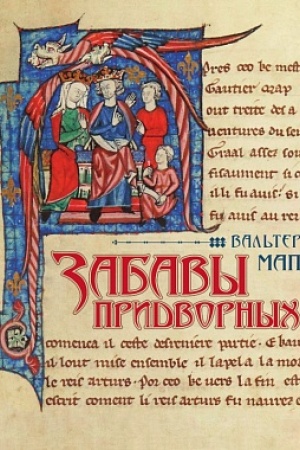 Pres ceo be mest
Gautier map
out treite des a
ventures du sei
Graal assez sou
fisaument si c
il li fu auis. si
fu auis au rei
ВАЛЬТЕР
МАП
ЗАБАВЫ
ПРИДВОРНЫХ
comenca il ceste desreiene partie. E
il lout mise ensemble il lapela la mor
le reis arturs. Por ceo be vers la fin est
escrit coment li reis arturs fu naurez